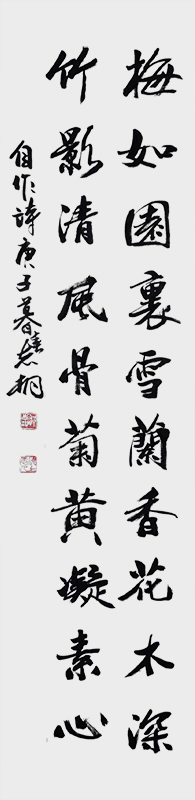 梅如園裏雪蘭香花木深
竹影清風骨菊黄凝素心
自作詩庚子暮春志桐